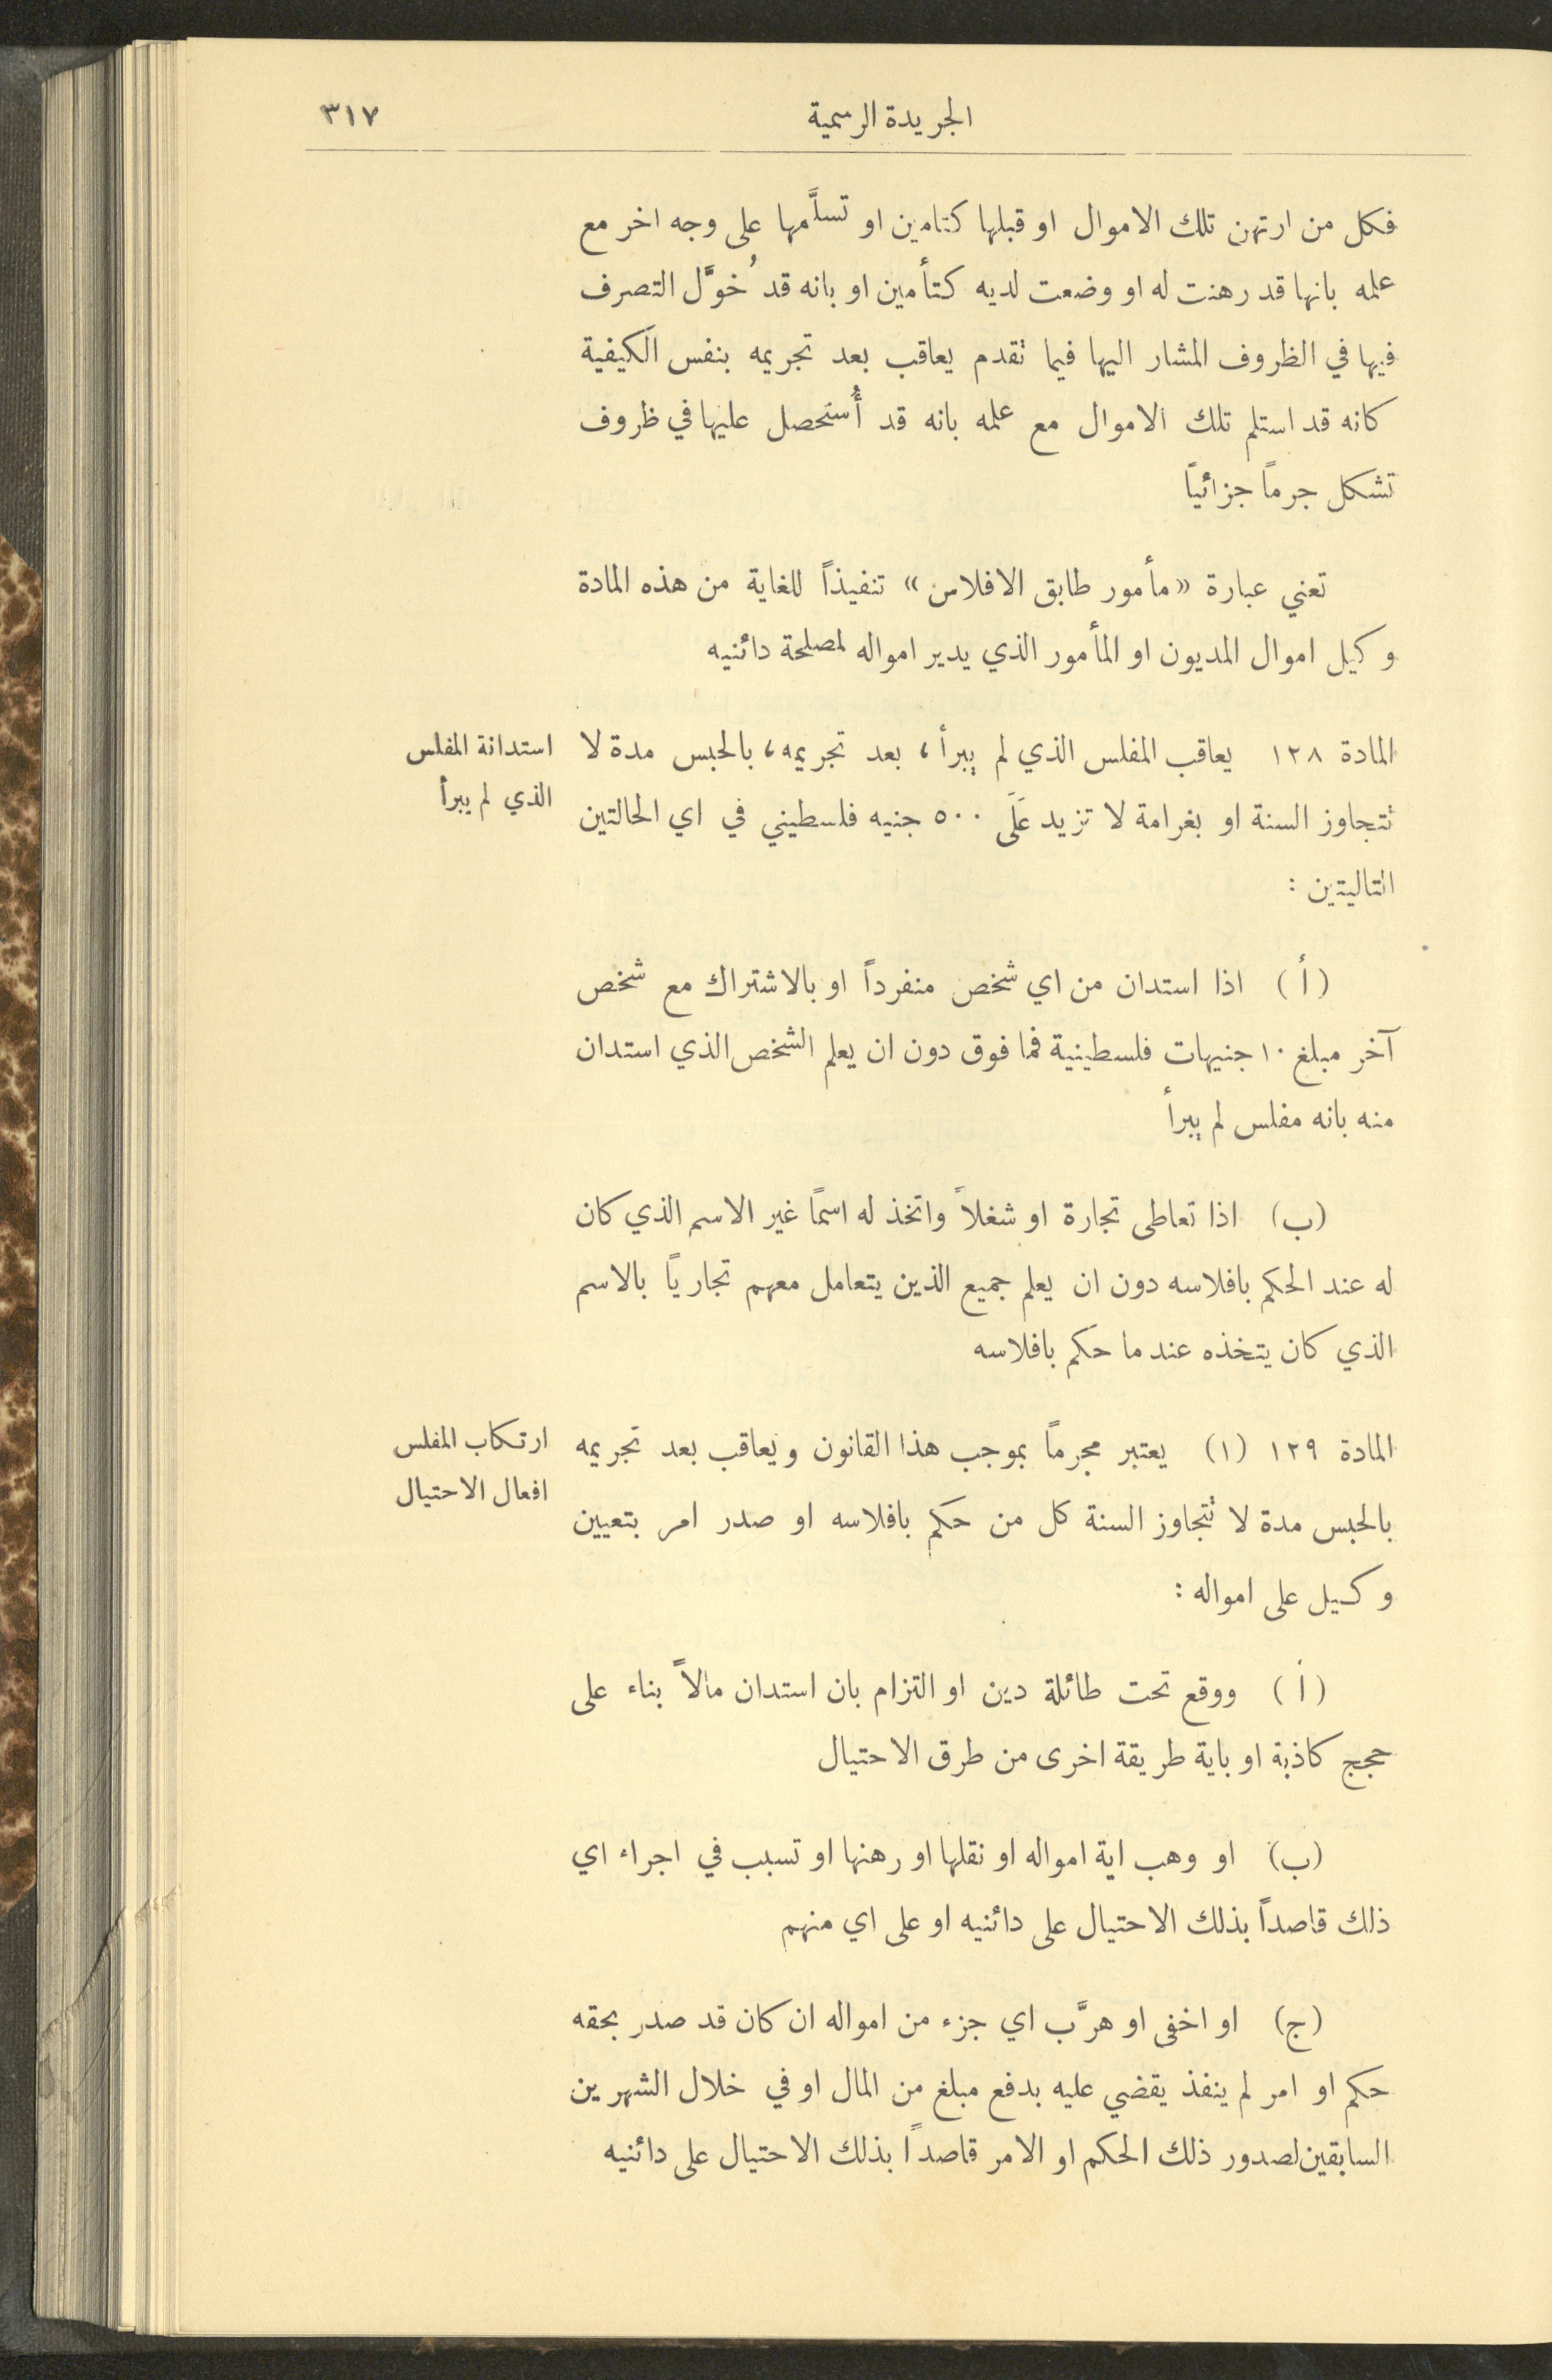 الجريدة الرسمية
٣١٧
فكل من ارتهن تلك الاموال او قبلها كتامين او تسلَّمها على وجه اخر مع
علمه بانها قد رهنت له او وضعت لديه كتأمين او بانه قد خُوّل التصرف
فيها في الظروف المشار اليها فيما تقدم يعاقب بعد تجريمه بنفس الكيفية
كانه قد استلم تلك الاموال مع علمه بانه قد أُستحصل عليها في ظروف
تشكل جرماً جزائياً
تعني عبارة «مأمور طابق الافلاس» تنفيذاً للغاية من هذه المادة
وكيل اموال المديون او المأمور الذي يدير امواله لمصلحة دائنيه
المادة ١٢٨ يعاقب المفلس الذي لم يبرأ، بعد تجريمه، بالحبس مدة لا
تتجاوز السنة او بغرامة لا تزيد عَلَى ٥٠٠ جنيه فلسطيني في اي الحالتين
التاليتين :
استدانة المفلس
الذي لم يبرأ
(أ) اذا استدان من اي شخص منفرداً او بالاشتراك مع شخص
آخر مبلغ ١٠ جنيهات فلسطينية فما فوق دون ان يعلم الشخص الذي استدان
منه بانه مفلس لم يبرأ
(ب) اذا تعاطى تجارة او شغلاً واتخذ له اسمًا غير الاسم الذي كان
له عند الحكم بافلاسه دون ان يعلم جميع الذين يتعامل معهم تجارياً بالاسم
الذي كان يتخذه عند ما حكم بافلاسه
المادة ١٢٩ (١) يعتبر مجرماً بموجب هذا القانون ويعاقب بعد تجريمه
بالحبس مدة لا تتجاوز السنة كل من حكم بافلاسه او صدر امر بتعيين
وكيل على امواله :
ارتكاب المفلس
افعال الاحتيال
(أ) ووقع تحت طائلة دين او التزام بان استدان مالاً بناء على
حجج كاذبة او باية طريقة اخرى من طرق الاحتيال
(ب) او وهب اية امواله او نقلها او رهنها او تسبب في اجراء اي
ذلك قاصداً بذلك الاحتيال على دائنيه او على اي منهم
(ج) او اخفى او هرَّب اي جزء من امواله ان كان قد صدر بحقه
حكم او امر لم ينفذ يقضي عليه بدفع مبلغ من المال او في خلال الشهرين
السابقين لصدور ذلك الحكم او الامر قاصداً بذلك الاحتيال على دائنيه